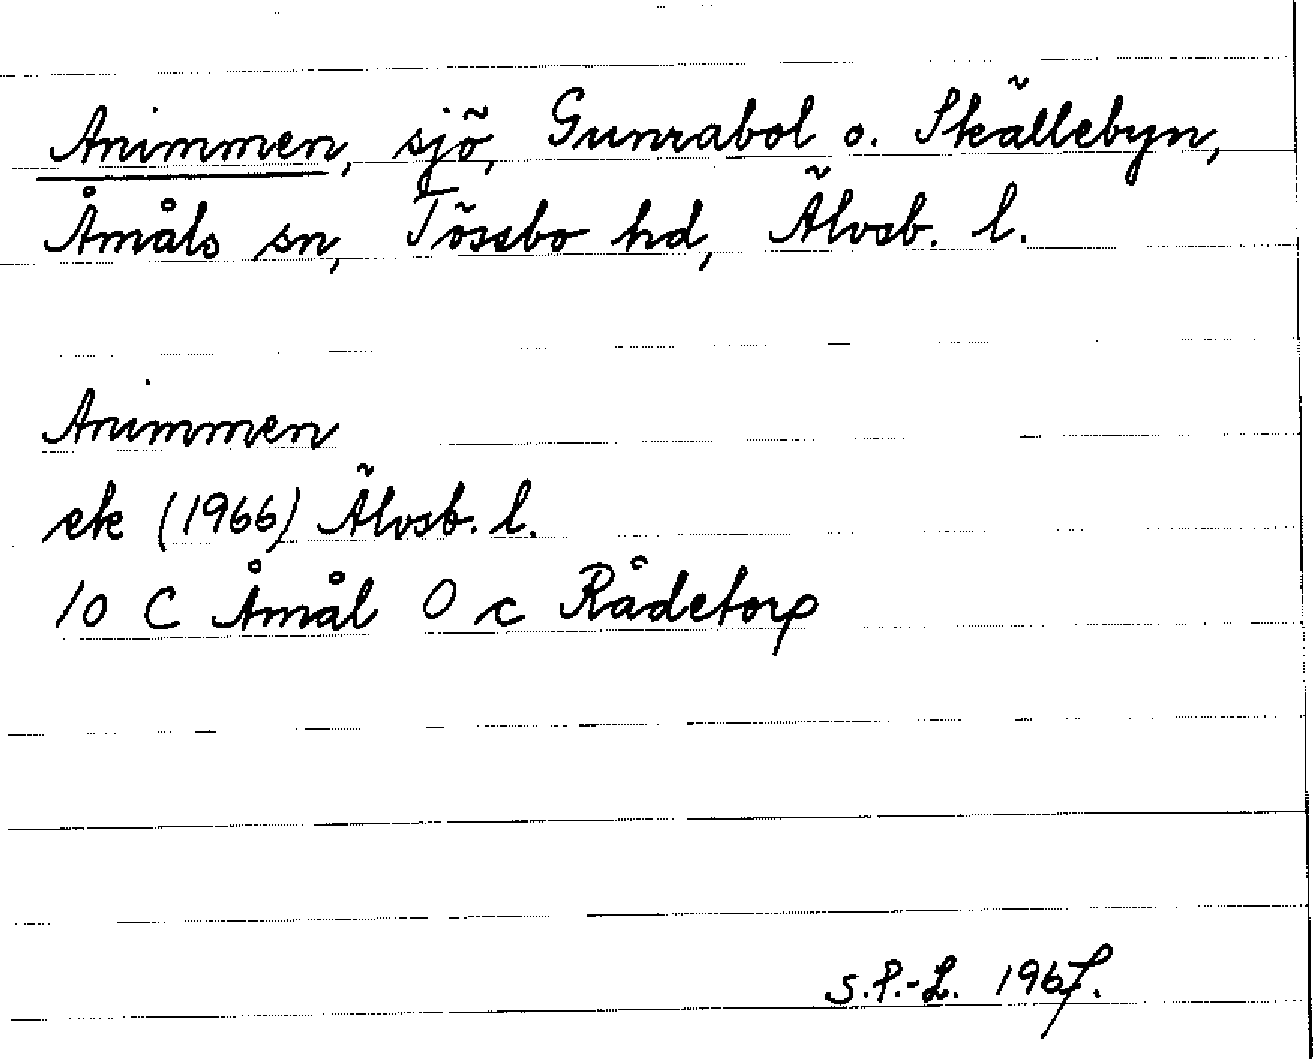 Animmen, sjö, Gunnabol o. Skällebyn,
Åmåls sn, Tössbo hd, Älvsb. l.
Animmen
ek (1966) Älvsb. l.
10 C Åmål 0 c Rådetorp
S.P.-L. 1967.